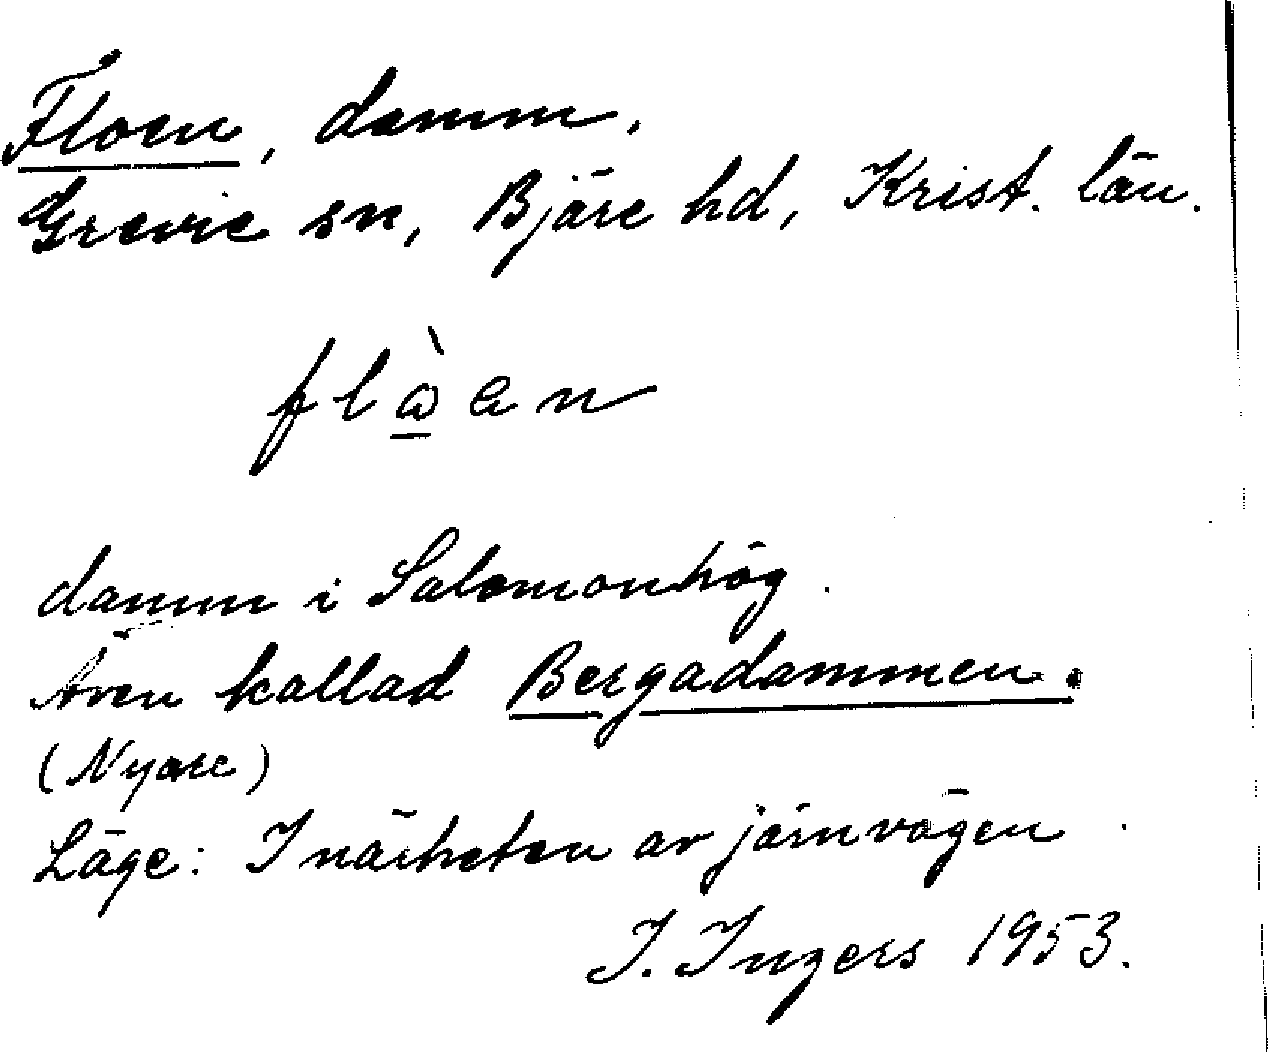 Floen, damm.
Grevie sn, Bjäre hd, Krist. län.
flὼen
damm i Salomonhög.
Även kallad Bergadammen.
(Nyare)
Läge: I närheten av järnvägen
I. Ingers 1953.